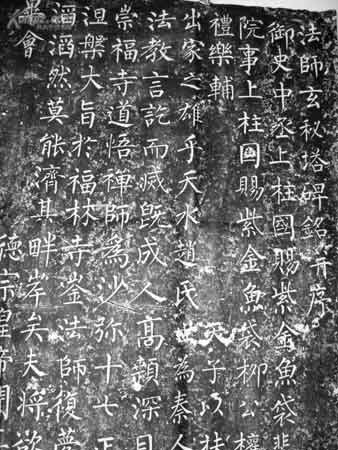 法師玄秘塔碑銘并序
御史中丞上柱國賜紫金魚袋裴
院事上柱國賜紫金魚袋柳公權
禮樂輔 天子以扶
出家之雄乎天水趙氏世為秦人
法教言訖而滅既成人高顙深目
崇福寺道悟禪師為沙弥十七正
涅槃大旨於福林寺崟法師復夢
滔滔然莫能濟其畔岸矣夫將欲
畢會 德宗皇帝聞